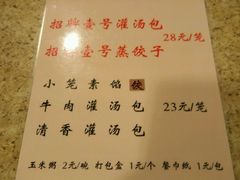 招牌壹号灌汤包
28元/笼
招牌壹号蒸饺子
小笼素馅饺
牛肉灌汤包 23元/笼
清香灌汤包
玉米粥 2元/碗 打包盒 1元/个 餐巾纸 1元/包